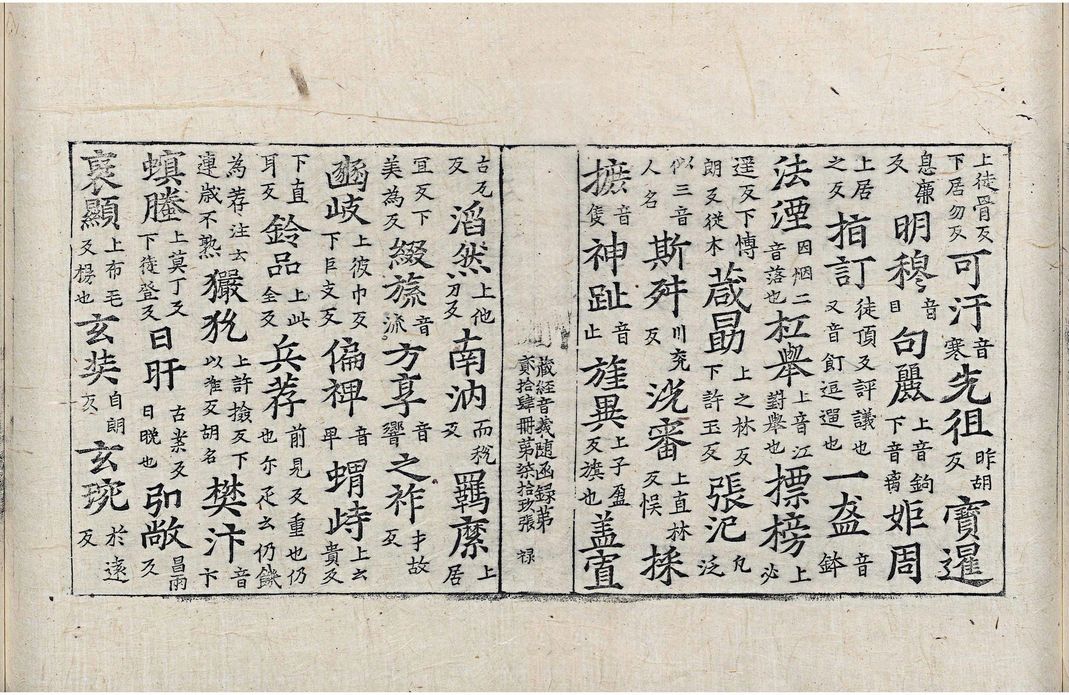 上徒骨反下居勿反可汗音寒先徂昨胡反寶暹
息廉反明穆音目句麗上音鉤下音离姖周
上居之反指訂徒頂反評議也又音飣逗遛也一盋音鉢
法湮因烟二音落也杠舉上音江對舉也摽榜上必
遥反下博朗反從木蕆勗上之林反下許玉反張氾凡泛
似三音人名斯舛川兖反洗審上直林反悮採
摭音隻神趾音止旌異上子盈反旗也盖寘
藏經音義隨函録第貳拾肆冊第柒拾玖張 禄
古瓦反滔然上他刀反南汭而税反羈縻上居
宜反下美為反綴旒音流方享音響之祚才故反
豳岐上彼巾反下巨支反偏裨音卑蝟峙上云貴反
下直耳反鈴品上此全反兵荐前見反重也仍也尔疋云仍饑
為荐注云連歲不熟玁狁上許撿反下以准反胡名樊汴音卞
螟螣上莫丁反下徒登反日旰古案反日晚也弘敞昌兩反
裦顯上布毛反揚也玄奘自朗反玄琬於遠反